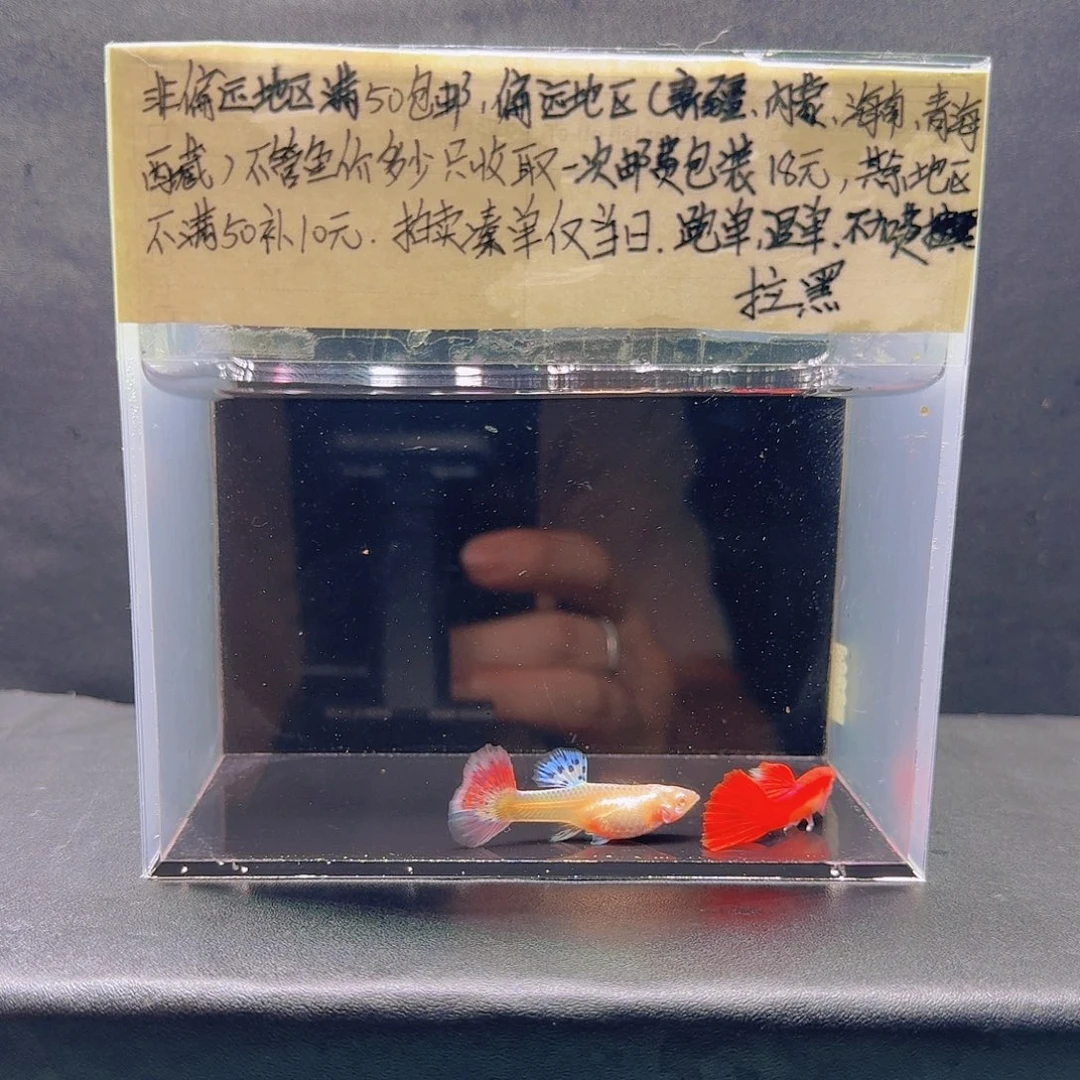 非偏远地区满50包邮,偏远地区(新疆、内蒙、海南、青海
西藏)不管鱼价多少只收取一次邮费包装18元,其余地区
不满50补10元.拍卖凑单仅当日.跑单,退单.不加
拉黑